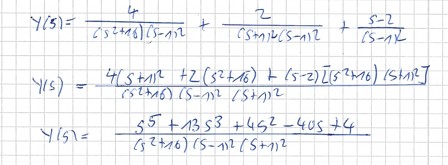 Y(s) = 4/((s²+16)(s-1)²) + 2/((s+1)²(s-1)²) + (s-2)/(s-1)²
Y(s) = (4(s+1)² + 2(s²+16) + (s-2)[(s²+16)(s+1)²])/((s²+16)(s-1)²(s+1)²)
Y(s) = (s⁵ + 13s³ + 4s² - 40s + 4)/((s²+16)(s-1)²(s+1)²)